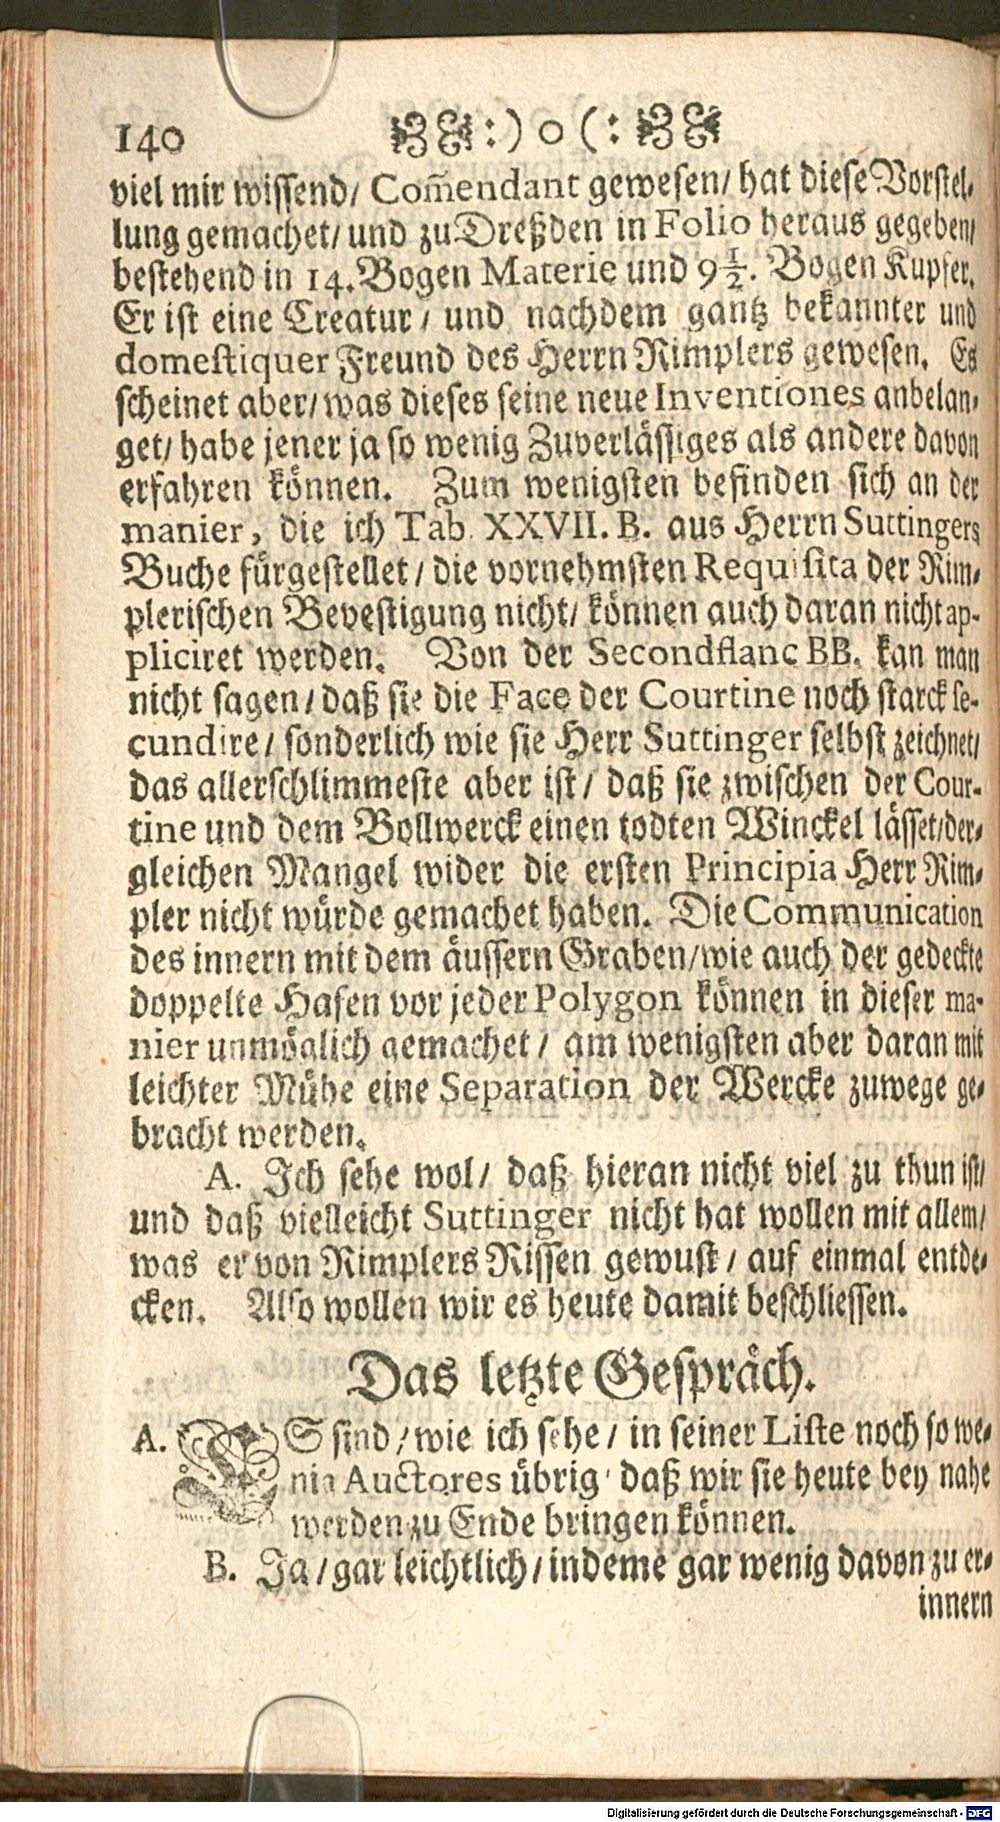 140 :) o (:
viel mir wissend/ Com̃endant gewesen/ hat diese Vorstel-
lung gemachet/ und zu Dreßden in Folio heraus gegeben/
bestehend in 14. Bogen Materie und 9½. Bogen Kupfer.
Er ist eine Creatur / und nachdem gantz bekannter und
domestiquer Freund des Herrn Rimplers gewesen. Es
scheinet aber/ was dieses seine neue Inventiones anbelan-
get/ habe jener ja so wenig Zuverlässiges als andere davon
erfahren können. Zum wenigsten befinden sich an der
manier, die ich Tab. XXVII. B. aus Herrn Suttingers
Buche fürgestellet / die vornehmsten Requisita der Rim-
plerischen Bevestigung nicht/ können auch daran nicht ap-
pliciret werden. Von der Secondflanc BB. kan man
nicht sagen / daß sie die Face der Courtine noch starck se-
cundire / sonderlich wie sie Herr Suttinger selbst zeichnet/
das allerschlimmeste aber ist / daß sie zwischen der Cour-
tine und dem Bollwerck einen todten Winckel lässet/ der-
gleichen Mangel wider die ersten Principia Herr Rim-
pler nicht würde gemachet haben. Die Communication
des innern mit dem äussern Graben/ wie auch der gedeckte
doppelte Hafen vor jeder Polygon können in dieser ma-
nier unmöglich gemachet / am wenigsten aber daran mit
leichter Mühe eine Separation der Wercke zuwege ge-
bracht werden.
A. Ich sehe wol/ daß hieran nicht viel zu thun ist/
und daß vielleicht Suttinger nicht hat wollen mit allem/
was er von Rimplers Rissen gewust / auf einmal entde-
cken. Also wollen wir es heute damit beschliessen.
Das letzte Gespräch.
A. ES sind / wie ich sehe / in seiner Liste noch so we-
nig Auctores übrig / daß wir sie heute bey nahe
werden zu Ende bringen können.
B. Ja / gar leichtlich / indeme gar wenig davon zu er-
innern
Digitalisierung gefördert durch die Deutsche Forschungsgemeinschaft - DFG